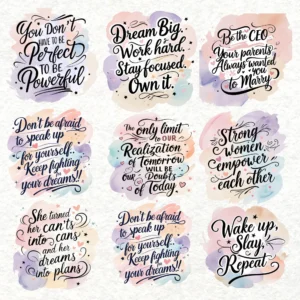 You Don't
HAVE TO BE
Perfect
TO BE
Powerful
Dream Big.
Work hard.
Stay focused.
Own it.
Be the CEO
Your parents
Always wanted
you
to Marry
Don't be afraid
to speak up
for yourself..
Keep fighting
your dreams!!
The only limit
to OUR
Realization
of Tomorrow
WILL BE
OUR Doubts
of Today.
Strong
women
empower
each other
She turned
her can'ts
into cans
and her
dreams
into plans
Don't be afraid
to speak up
for yourself..
Keep fighting
your dreams!!
Wake up,
Slay,
Repeat